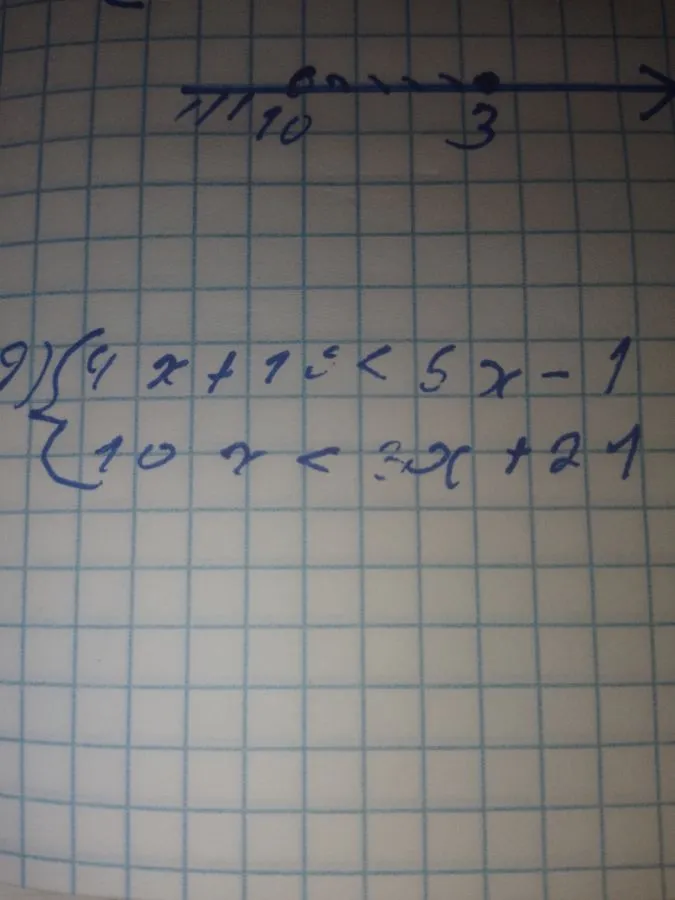 10 3
9) { 4x + 15 < 5x - 1
10x < 3x + 21